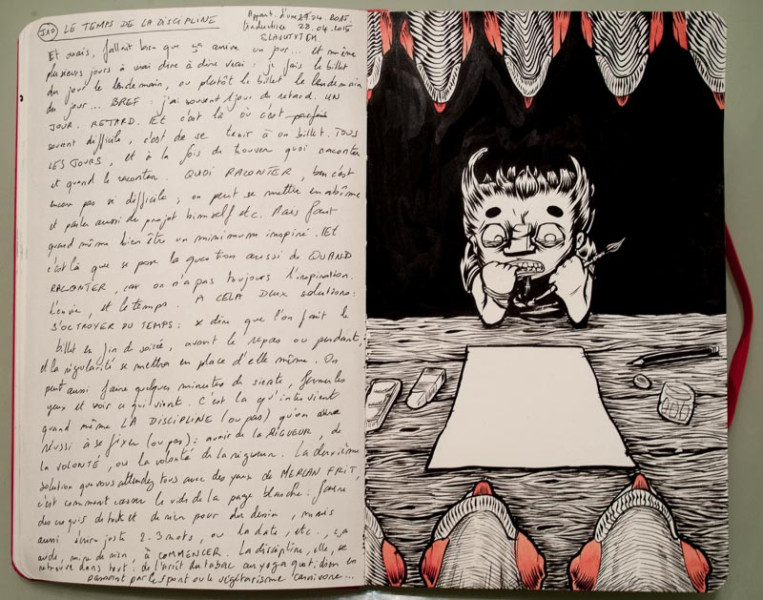 J20 LE TEMPS DE LA DISCIPLINE
Appart. d'un 29.04.2015
28.04.2015
SLAVUTYCH
Et ouais, fallait bien que ça arrive un jour... et même
plusieurs jours à vrai dire : j'fais le billet
du jour le lendemain, ou plutôt le billet le lendemain
du jour... BREF : j'ai souvent 1 jour de retard. UN
JOUR. RETARD. Et c'est là où c'est parfois
souvent difficile, c'est de se tenir à un billet. TOUS
LES JOURS, et à la fois de trouver quoi raconter
et quand le raconter. QUOI RACONTER, bon c'est
encore pas si difficile, on peut se mettre en abîme
et parler aussi du projet himself etc. Mais faut
quand même bien être un minimum inspiré. Et
c'est là que se pose la question aussi du QUAND
RACONTER, car on n'a pas toujours l'inspiration.
L'envie, et le temps. A CELA DEUX solutions:
S'OCTROYER DU TEMPS: se dire que l'on fait le
billet en fin de soirée, avant le repas ou pendant,
et la régularité se mettra en place d'elle même. On
peut aussi faire quelques minutes de sieste, fermer les
yeux et voir ce qui vient. C'est là qu'intervient
quand même LA DISCIPLINE (ou pas) qu'on aura
réussi à se fixer (ou pas): avoir de la RIGUEUR, de
la VOLONTÉ, ou la volonté de la rigueur. La deuxième
solution que vous attendez tous avec des yeux de MERLAN FRIT,
c'est comment casser le vide de la page blanche: faire
des croquis de tout et de rien pour du dessin, mais
aussi écrire juste 2-3 mots, ou la date, etc., ça
aide, mine de rien, à COMMENCER. La discipline, elle, se
retrouve dans tout: de l'arrêt du tabac au yoga quotidien en
passant par le sport ou le végétarisme carnivore...